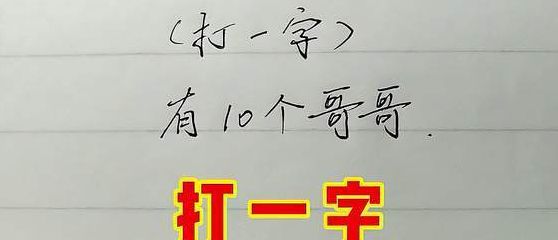 （打一字）
有10个哥哥.
打一字